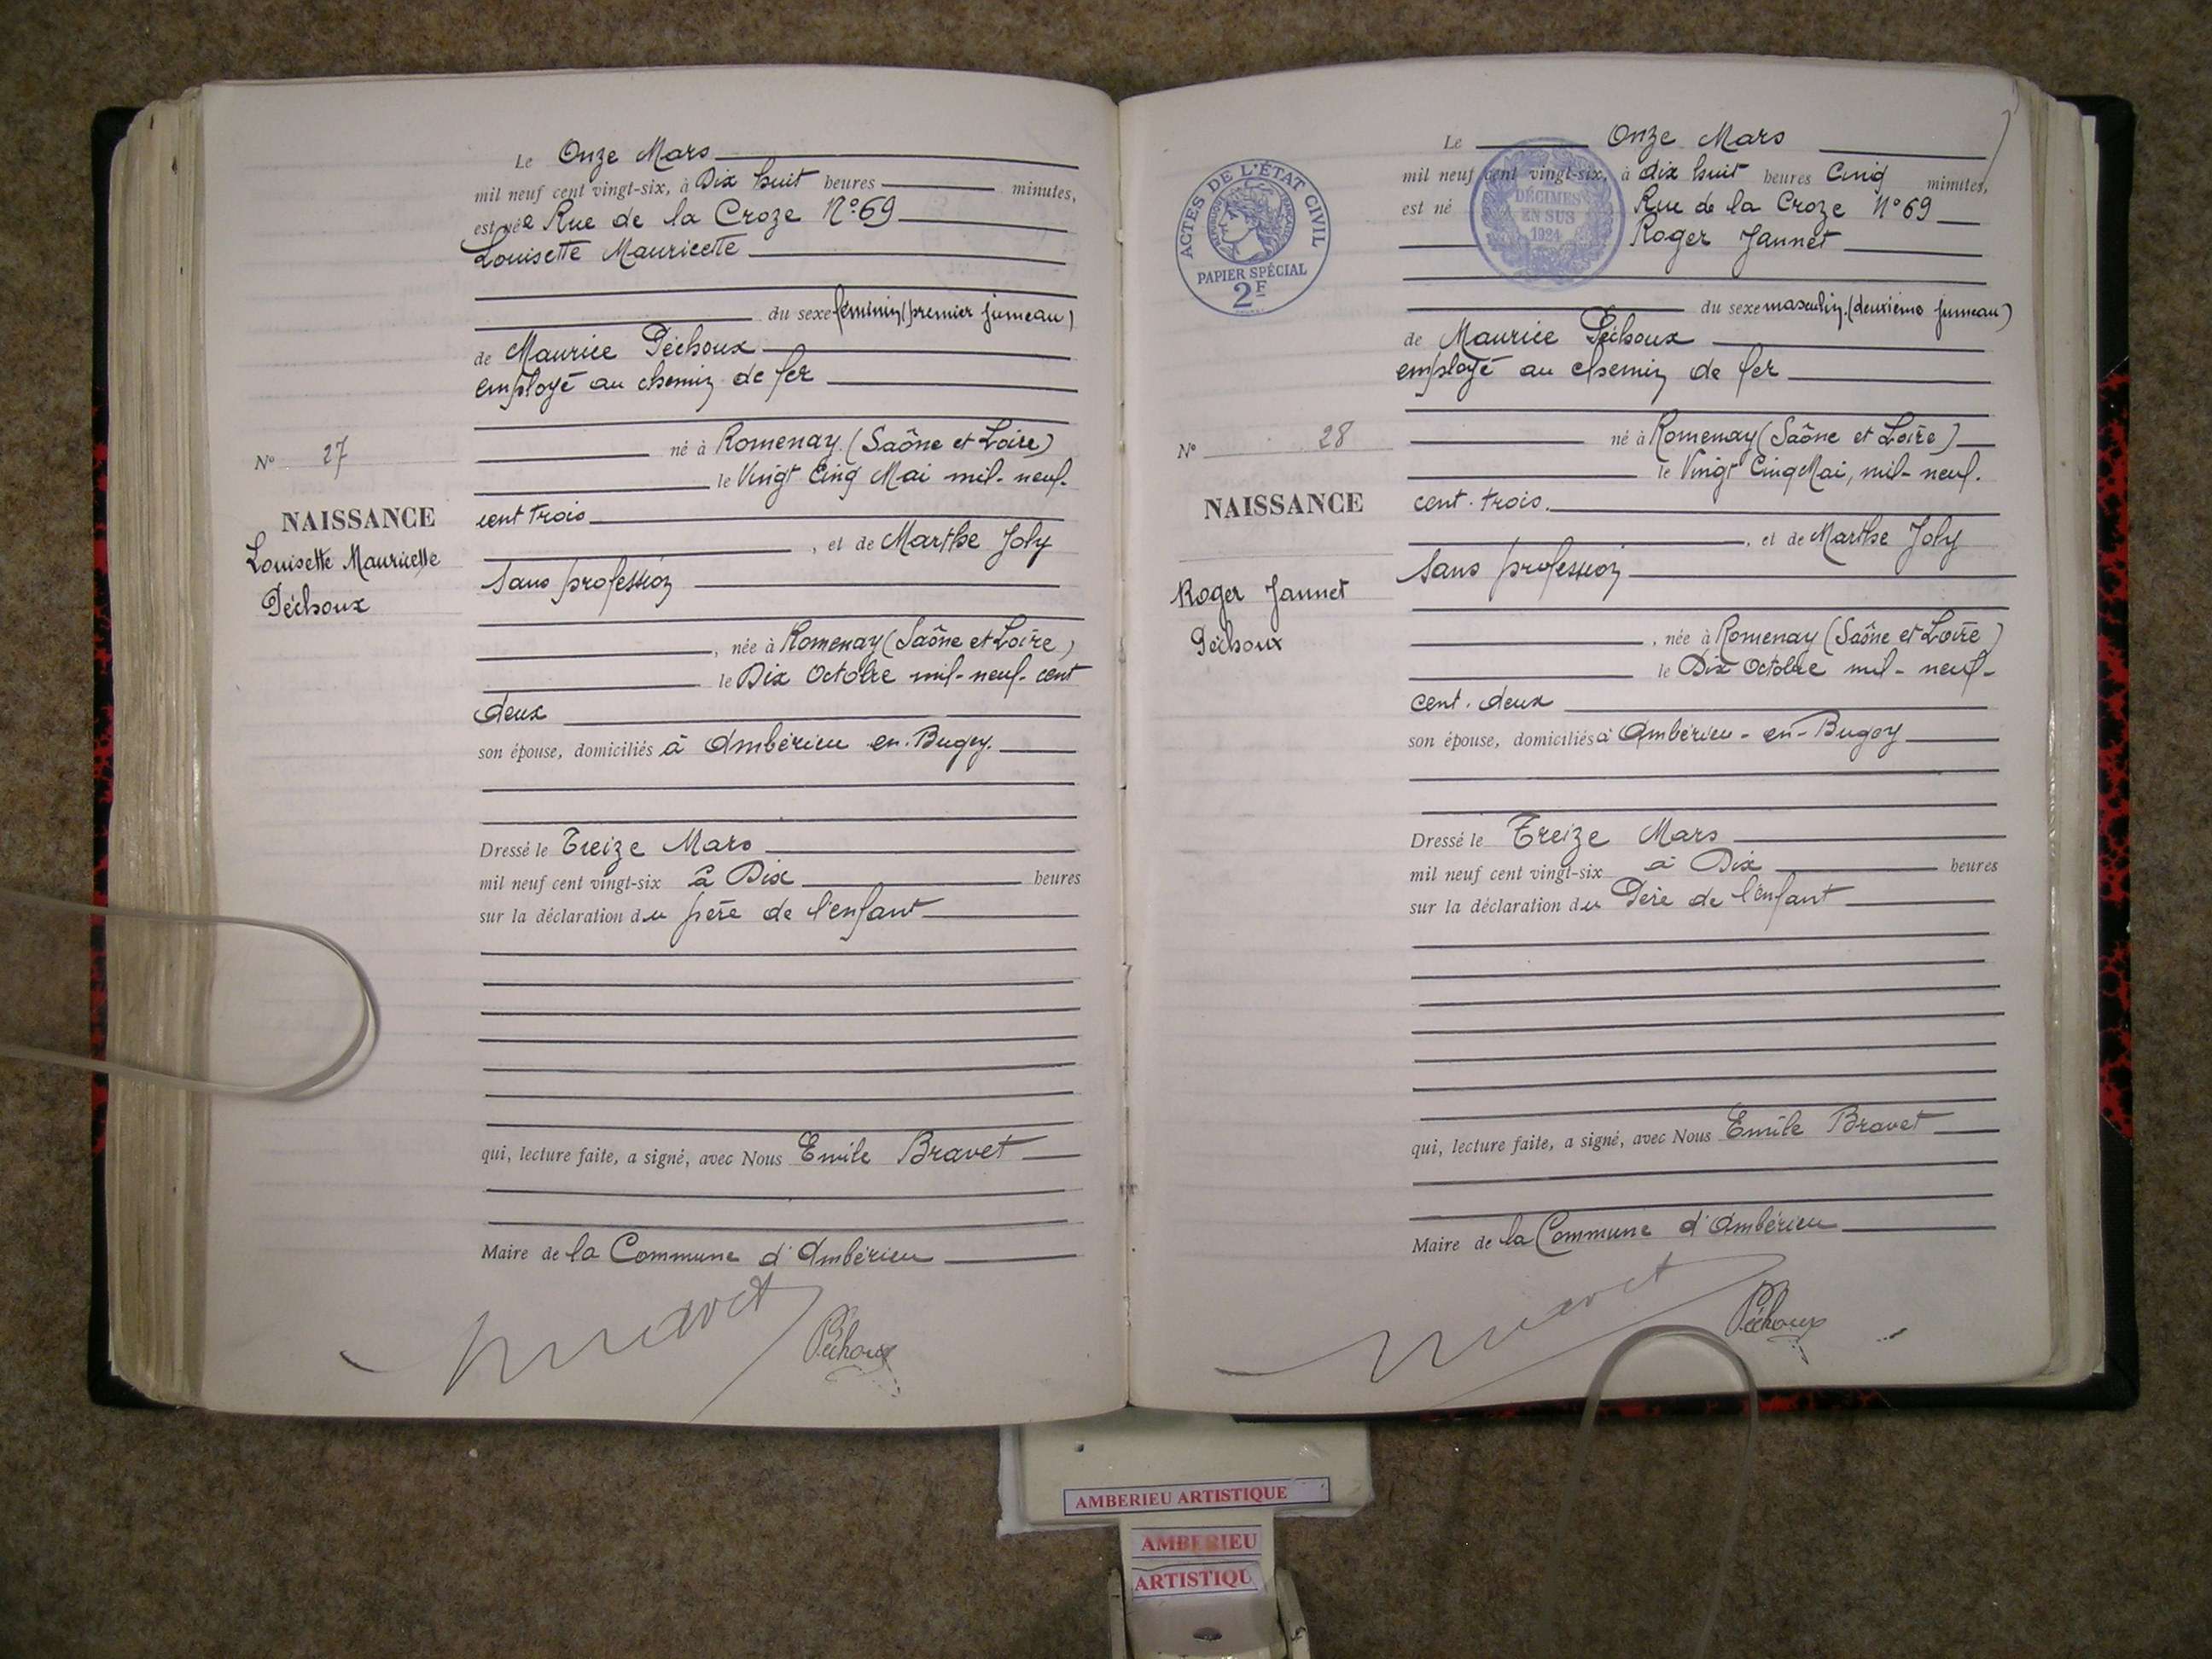 Le Onze Mars
mil neuf cent vingt-six, à Dix huit heures minutes,
est née Rue de la Croze N° 69
Louisette Mauricette
du sexe féminin (premier jumeau)
de Maurice Péchoux
employé au chemin de fer
né à Romenay (Saône et Loire)
le Vingt Cinq Mai mil-neuf-
cent trois
, et de Marthe Joly
sans profession
, née à Romenay (Saône et Loire)
le Dix Octobre mil-neuf-cent
deux
son épouse, domiciliés à Ambérieu en-Bugey.
Dressé le Treize Mars
mil neuf cent vingt-six à Dix heures
sur la déclaration du père de l'enfant
qui, lecture faite, a signé, avec Nous Emile Bravet
Maire de la Commune d'Ambérieu
Péchoux
N° 27
NAISSANCE
Louisette Mauricette
Péchoux
ACTES DE L'ÉTAT CIVIL
PAPIER SPÉCIAL
2F
DÉCIMES
EN SUS
1924
Le Onze Mars
mil neuf cent vingt-six, à dix huit heures Cinq minutes,
est né Rue de la Croze N° 69
Roger Jannet
du sexe masculin (deuxième jumeau)
de Maurice Péchoux
employé au chemin de fer
né à Romenay (Saône et Loire)
le Vingt Cinq Mai, mil-neuf.
cent. trois.
, et de Marthe Joly
sans profession
, née à Romenay (Saône et Loire)
le Dix Octobre mil-neuf-
cent. deux
son épouse, domiciliés à Ambérieu-en-Bugey
Dressé le Treize Mars
mil neuf cent vingt-six à Dix heures
sur la déclaration du Père de l'enfant
qui, lecture faite, a signé, avec Nous Emile Bravet
Maire de la Commune d'Ambérieu
Péchoux
N° 28
NAISSANCE
Roger Jannet
Péchoux
AMBERIEU ARTISTIQUE
AMBERIEU
ARTISTIQU